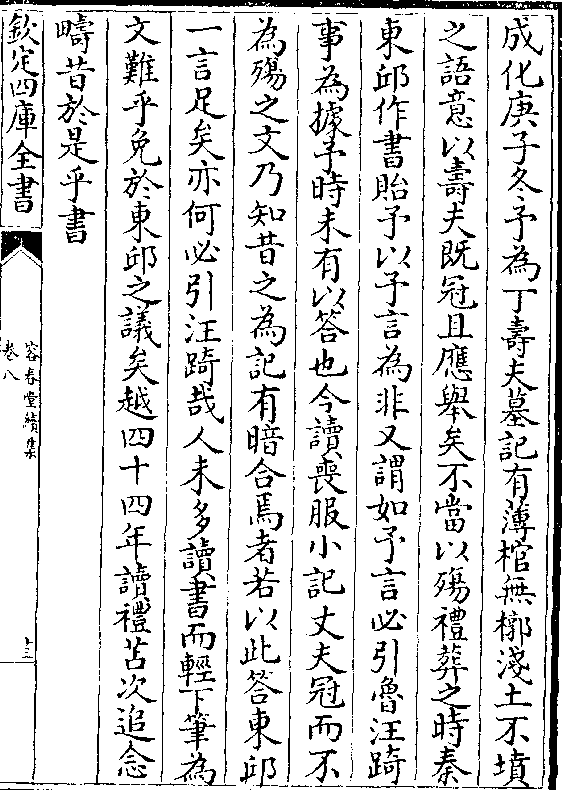 成化庚子冬予為丁壽夫墓記有薄棺無槨淺土不墳
之語意以壽夫既冠且應舉矣不當以殤禮葬之時秦
東邱作書貽予以予言為非又謂如予言必引魯汪踦
事為據予時未有以答也今讀喪服小記丈夫冠而不
為殤之文乃知昔之為記有暗合焉者若以此答東邱
一言足矣亦何必引汪踦哉人未多讀書而輕下筆為
文難乎免於東邱之議矣越四十四年讀禮苫次追念
疇昔於是乎書
欽定四庫全書
容春堂續集
卷八
十三